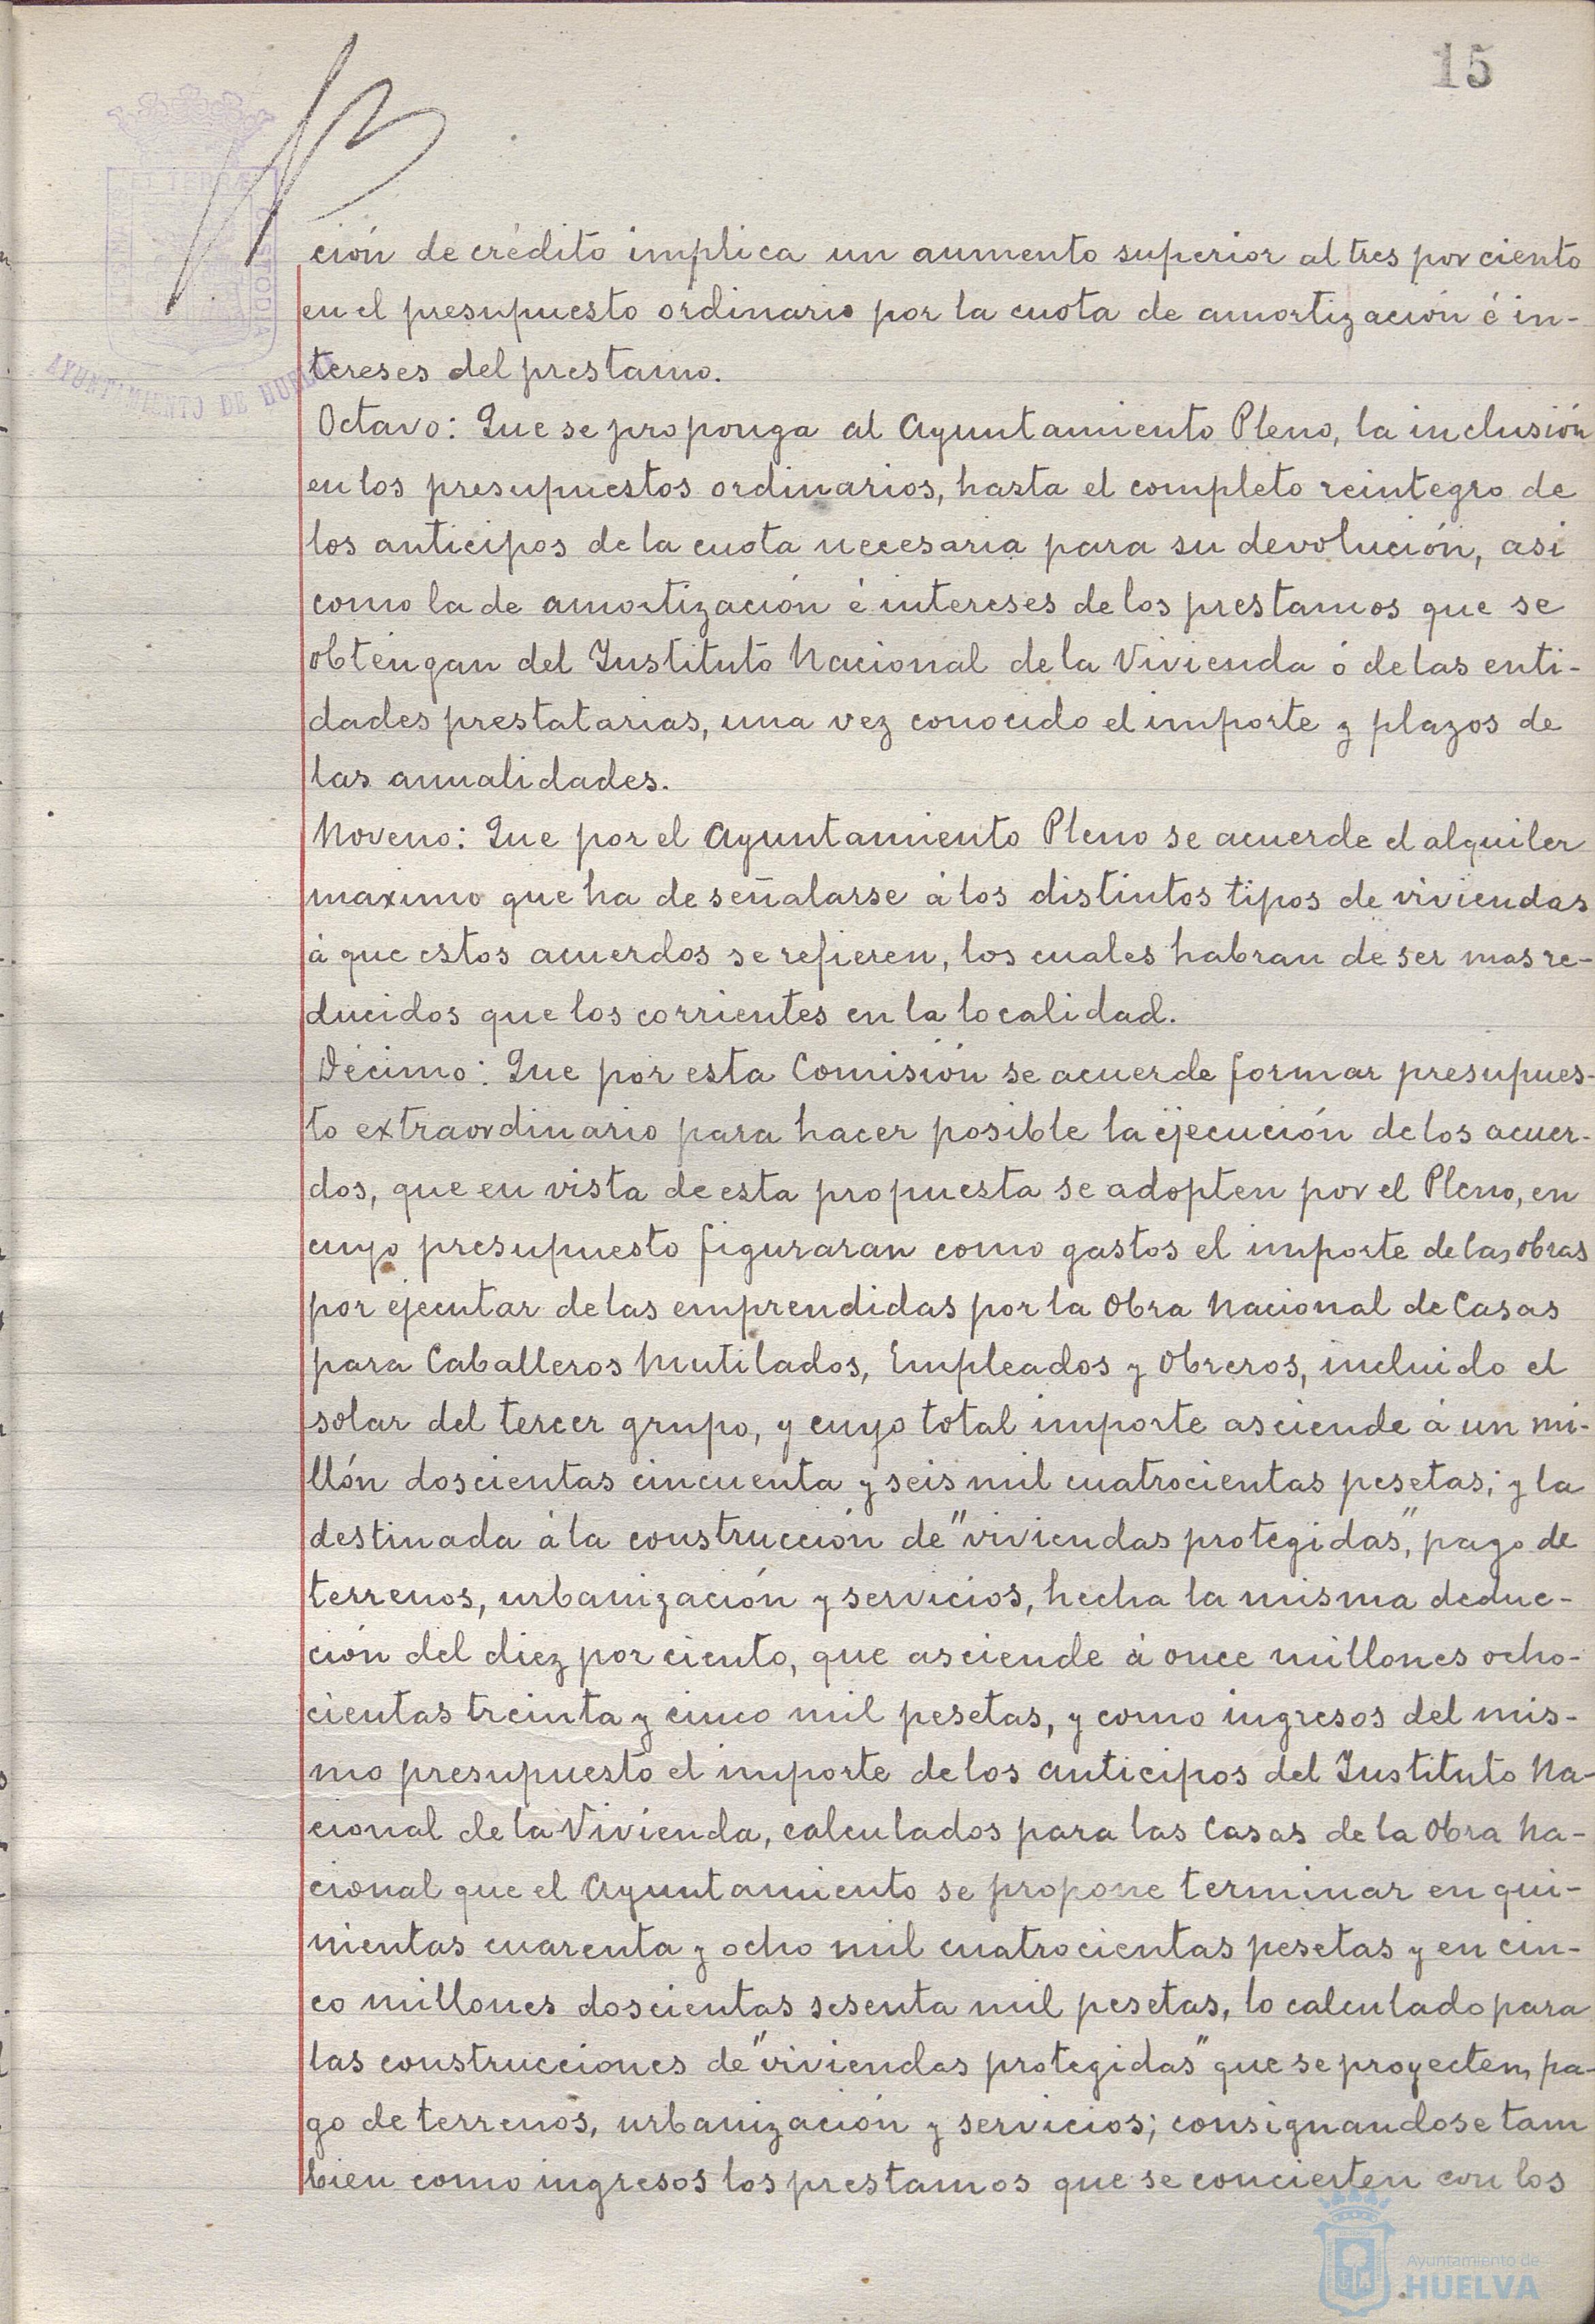 15
ción de crédito implica un aumento superior al tres por ciento
en el presupuesto ordinario por la cuota de amortización é in-
tereses del prestamo.
AYUNTAMIENTO DE HUELVA
Octavo: Que se proponga al Ayuntamiento Pleno, la inclusión
en los presupuestos ordinarios, hasta el completo reintegro de
los anticipos de la cuota necesaria para su devolución, asi
como la de amortización é intereses de los prestamos que se
obtengan del Instituto Nacional de la Vivienda ó de las enti-
dades prestatarias, una vez conocido el importe y plazos de
las anualidades.
Noveno: Que por el Ayuntamiento Pleno se acuerde el alquiler
maximo que ha de señalarse á los distintos tipos de viviendas
á que estos acuerdos se refieren, los cuales habran de ser mas re-
ducidos que los corrientes en la localidad.
Décimo: Que por esta Comisión se acuerde formar presupues-
to extraordinario para hacer posible la ejecución de los acuer-
dos, que en vista de esta propuesta se adopten por el Pleno, en
cuyo presupuesto figuraran como gastos el importe de las obras
por ejecutar de las emprendidas por la Obra Nacional de Casas
para Caballeros Mutilados, Empleados y Obreros, incluido el
solar del tercer grupo, y cuyo total importe asciende á un mi-
llón doscientas cincuenta y seis mil cuatrocientas pesetas; y la
destinada á la construcción de "viviendas protegidas", pago de
terrenos, urbanización y servicios, hecha la misma deduc-
ción del diez por ciento, que asciende á once millones ocho-
cientas treinta y cinco mil pesetas, y como ingresos del mis-
mo presupuesto el importe de los anticipos del Instituto Na-
cional de la Vivienda, calculados para las Casas de la Obra Na-
cional que el Ayuntamiento se propone terminar en qui-
nientas cuarenta y ocho mil cuatrocientas pesetas y en cin-
co millones doscientas sesenta mil pesetas, lo calculado para
las construcciones de "viviendas protegidas" que se proyecten, pa-
go de terrenos, urbanización y servicios; consignandose tam
bien como ingresos los prestamos que se concierten con los
Ayuntamiento de
HUELVA